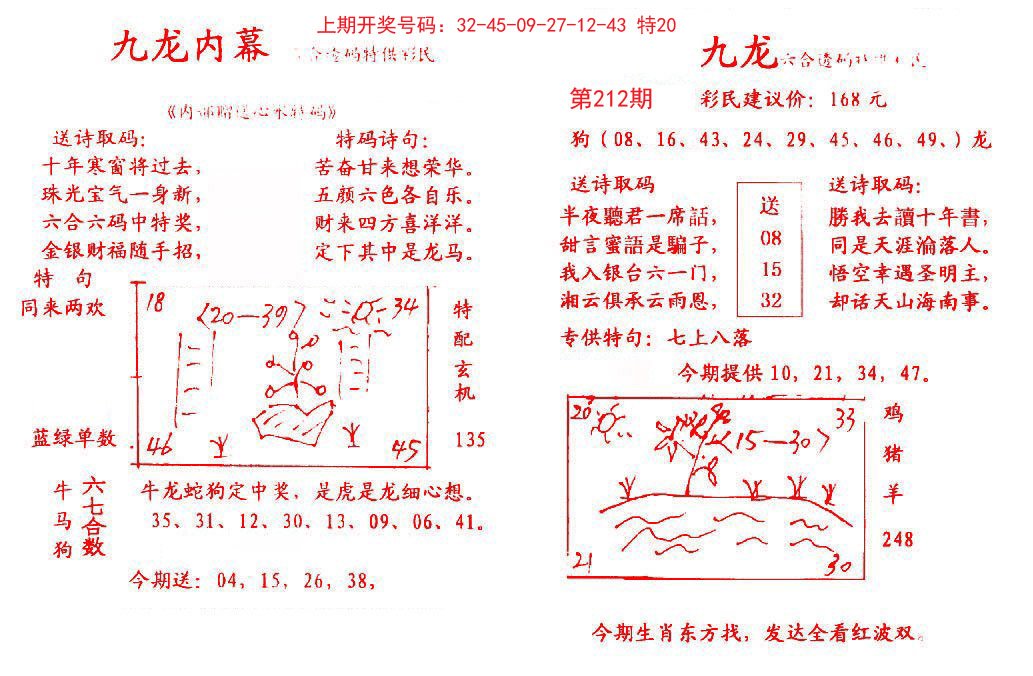 上期开奖号码：32-45-09-27-12-43 特20
九龙内幕
合透码特供彩民
送诗取码：
十年寒窗将过去，
珠光宝气一身新，
六合六码中特奖，
金银财福随手招，
特码诗句：
苦奋甘来想荣华。
五颜六色各自乐。
财来四方喜洋洋。
定下其中是龙马。
特 句
同来两欢
18
〈20—39〉
34
46
45
蓝绿单数
特配玄机
135
牛马狗
六七合数
牛龙蛇狗定中奖，是虎是龙细心想。
35、31、12、30、13、09、06、41。
今期送：04，15，26，38，
九龙
六合透码
第212期
彩民建议价：168元
狗（08、16、43、24、29、45、46、49、）龙
送诗取码
半夜聽君一席話，
甜言蜜語是騙子，
我入银台六一门，
湘云俱承云雨恩，
送
08
15
32
送诗取码：
勝我去讀十年書，
同是天涯淪落人。
悟空幸遇圣明主，
却话天山海南事。
专供特句：七上八落
今期提供10，21，34，47。
20
33
〈15—30〉
21
30
鸡
猪
羊
248
今期生肖东方找，发达全看红波双。